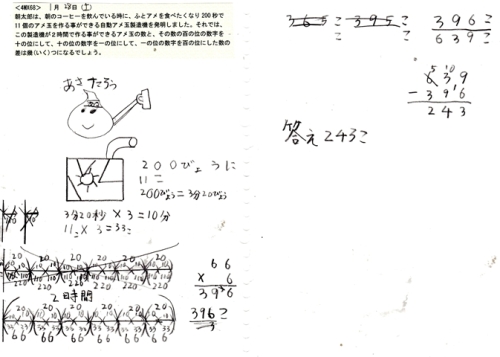 <4MX68> 1月 28日 (土)
朝太郎は、朝のコーヒーを飲んでいる時に、ふとアメを食べたくなり200秒で
11個のアメ玉を作る事ができる自動アメ玉製造機を発明しました。それでは、
この製造機が2時間で作る事ができるアメ玉の数と、その数の百の位の数字を
十の位にして、十の位の数字を一の位にして、一の位の数字を百の位にした数の
差は幾(いく)つになるでしょう。
あさたろう
200びょうに
11こ
200びょう=3分20びょう
3分20秒×3=10分
11こ×3=33こ
20 20 20 20 20 20
2時間
20 20 20 20 20 20
10 10 10 10 10 10 10 10 10 10 10 10
33 33 33 33 33 33 33 33 33 33 33 33
66 66 66 66 66 66
66
× 6
396
396こ
365こ 395こ 396こ
639こ
639
-396
243
答え243こ